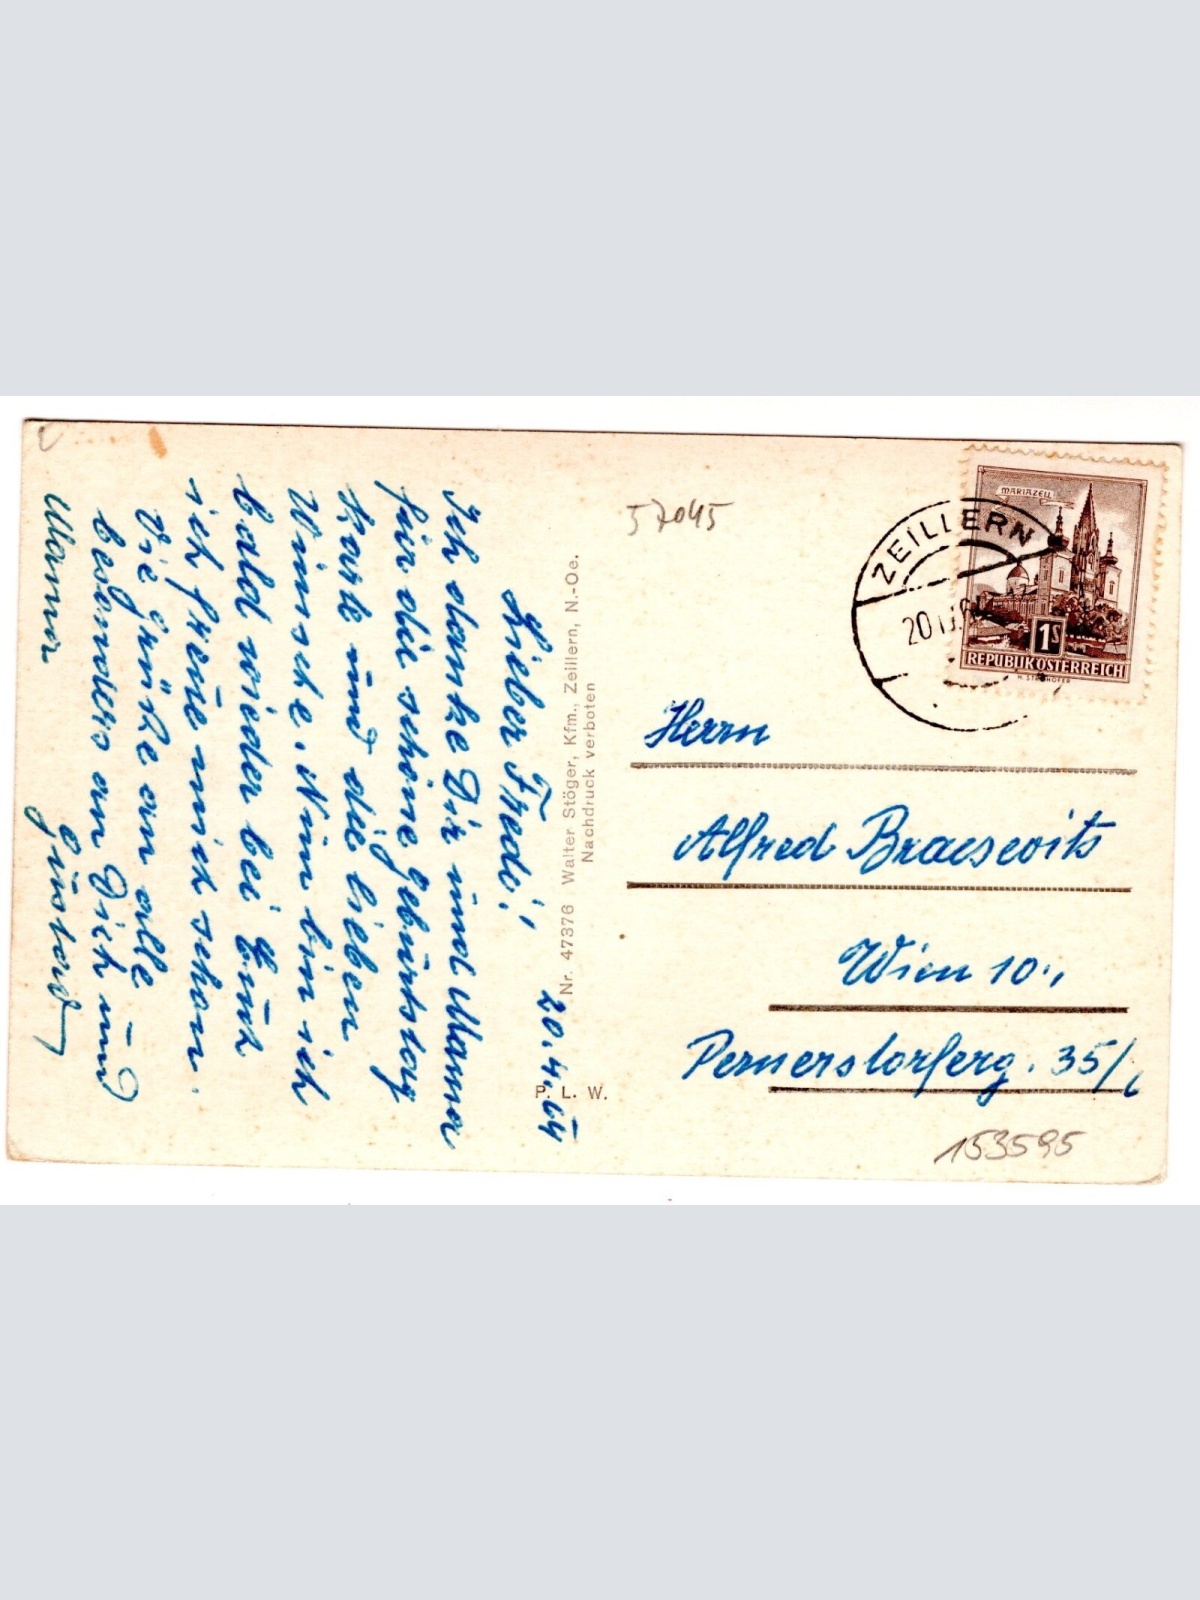 20.4.64
Lieber Fredi!
Ich danke Dir und Mama
für die schöne Geburtstag
karte und die lieben
Wünsche. Nun bin ich
bald wieder bei Euch
ich freue mich schon.
Viele Grüße an alle
besonders an Dich und
Mama
Gustav
Nr. 47376 Walter Stöger, Kfm., Zeillern, N.-Oe.
Nachdruck verboten
P. L. W.
57045
ZEILLERN
MARIAZELL
1S
REPUBLIK ÖSTERREICH
Herrn
Alfred Braesevits
Wien 10.,
Pernerstorferg. 35/
153595